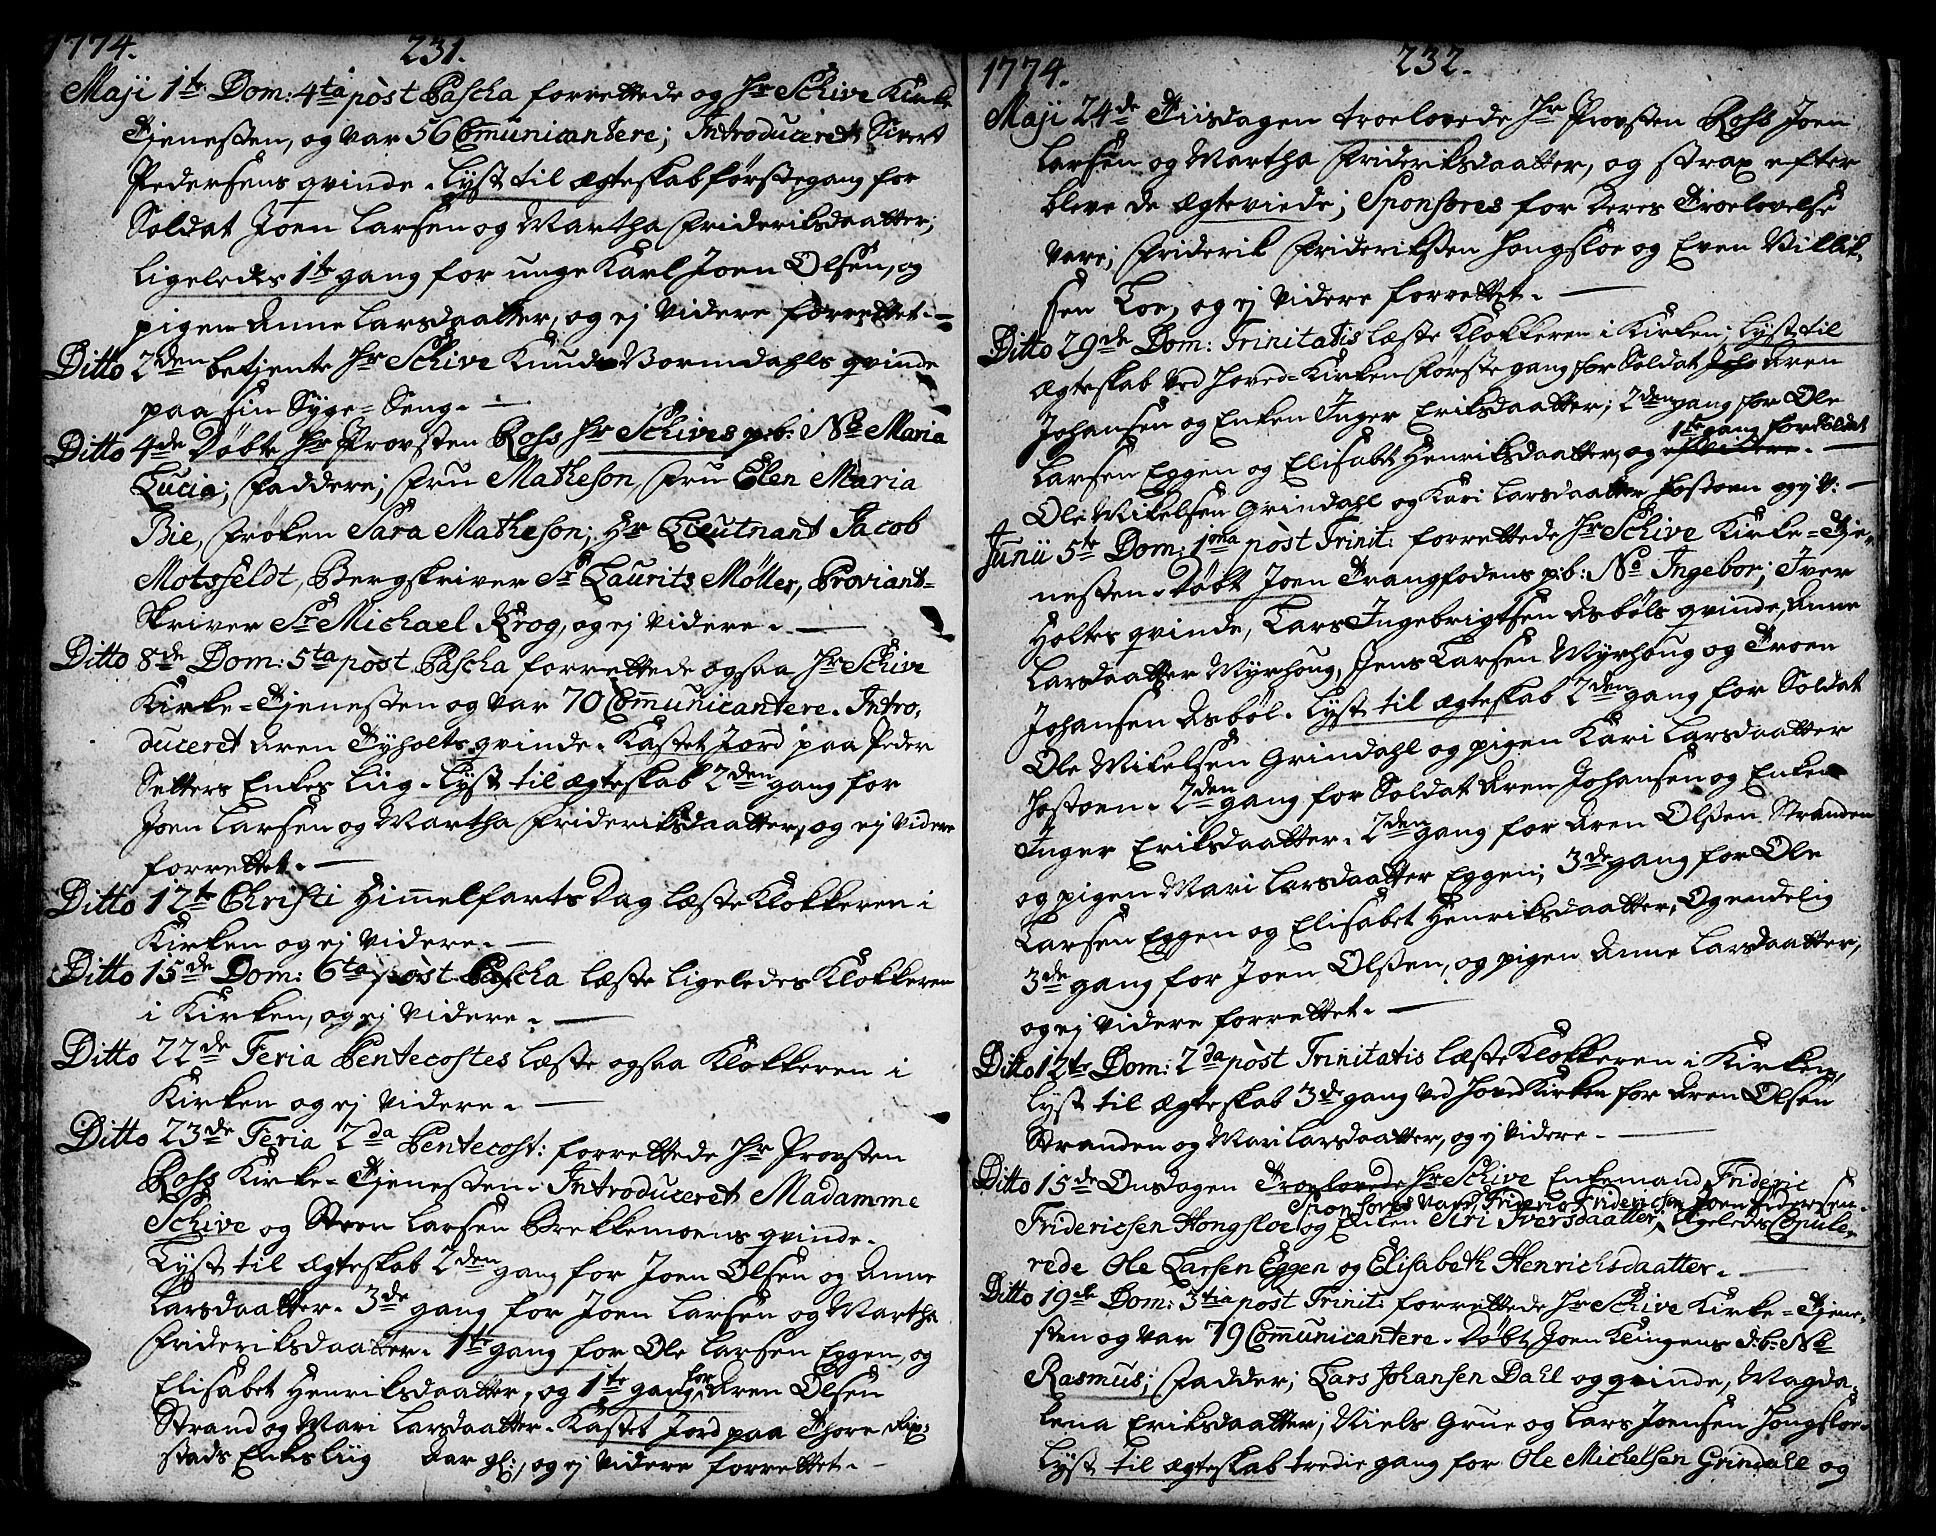 1774. 231.
Maji 1te Dom: 4ta pòst Pascha forrettede og Hr Schive Kirke
Tjenesten, og var 56 Comunicantere; Introduceret Sivert
Pedersens qvinde. Lyst til ægteskab første gang for
Soldat Joen Larsen og Martha Frideriksdaatter;
Ligeledes 1te gang for unge Karl Joen Olsen, og
pigen Anne Larsdaatter, og ej videre forrettet. —
Ditto 2den betjente Hr Schive Knud Bormdahls qvinde
paa sin Syge-Seng. —
Ditto 4de Døbte Hr Provsten Rohs Hr Schives p:b: No Maria
Lucia; Faddere; Fru Matheson, Fru Elen Maria
Bie, Frøken Sara Matheson; Hr Lieutnant Jacob
Motsfeldt, Bergskriver Sr Laurits Møller, Proviant-
Skriver Sr Michael Krog, og ej videre. —
Ditto 8de Dom: 5ta pòst Pascha forrettede ogsaa Hr Schive
Kirke-Tjenesten og var 70 Comunicantere. Intro,
duceret Aren Tyholts qvinde. Kastet Jord paa Peder
Setters Enkes Liig. Lyst til ægteskab 2den gang for
Joen Larsen og Martha Frideriksdaatter, og ej videre
forrettet. —
Ditto 12te Christi Himelfarts Dag læste Klokkeren i
Kirken og ej videre. —
Ditto 15de Dom: 6ta pòst Pascha læste ligeledes Klokkeren
i Kirken, og ej videre. —
Ditto 22de Feria Pentecostes læste ogsaa Klokkeren i
Kirken og ej videre. —
Ditto 23de Feria 2da Pentecost: forrettede Hr Provsten
Rohs Kirke-Tjenesten. Introduceret Madamme
Schive og Steen Larsen Brekkemoens qvinde.
Lyst til ægteskab 2den gang for Joen Olsen og Anne
Larsdaatter. 3de gang for Joen Larsen og Martha
Frideriksdaatter. 1te gang for Ole Larsen Eggen, og
Elisabet Henriksdaatter, og 1te gang for Aren Olsen
Strand og Mari Larsdaatter. Kastet Jord paa Thore
stads Enkes Liig Aar gl:, og ej videre forrettet. —
1774. 232.
Maji 24de Tiisdagen troelovede Hr Provsten Rohs Joen
Larsen og Martha Frideriksdaatter, og strax efter
bleve de ægteviede; Sponsores for deres Troelovelse
vare; Friderik Frideriksen Hongsloe og Even Billik,
sen Loe, og ej videre forrettet. —
Ditto 29de Dom: Trinitatis læste Klokkeren i Kirken; Lyst til
ægteskab ved Hoved-Kirken første gang for Soldat Aren
Johansen og Enken Inger Eriksdaatter; 2den gang for Ole
Larsen Eggen og Elisabet Henriksdaatter, og ej videre. 1te gang for Soldat
Ole Mikelsen Grindahl og Kari Larsdaatter Hostoen og ej v: —
Junii 5te Dom: 1ma pòst Trinit: forrettede Hr Schive Kirke-Tje-
nesten. Døbt Joen Trangfodens p:b: No Ingebor; Iver
Holtes qvinde, Lars Ingebrigtsen Asbøls qvinde, Anne
Larsdaatter Myrhoug, Jens Larsen Myrhoug og Troen
Johansen Asbøl. Lyst til ægteskab 2den gang for Soldat
Ole Mikelsen Grindahl og pigen Kari Larsdaatter
Hostoen. 2den gang for Soldat Aren Johansen og Enken
Inger Eriksdaatter. 2den gang for Aren Olsen Stranden
og pigen Mari Larsdaatter Eggen; 3de gang for Ole
Larsen Eggen og Elisabet Henriksdaatter, Og endelig
3de gang for Joen Olsen, og pigen Anne Larsdaatter,
og ej videre forrettet. —
Ditto 12te Dom: 2da pòst Trinitatis læste Klokkeren i Kirken,
Lyst til ægteskab 3de gang ved Hoved Kirken for Aren Olsen
Stranden og Mari Larsdaatter, og ej videre. —
Ditto 15de Onsdagen Troelovede Hr Schive Enkemand Frideric
Sponsores vare Frideric Fridericsen Joen Sivertsen.
Fridericsen Hongsloe og Enken Siri Iversdaatter, Ligeledes Copule,
rede Ole Larsen Eggen og Elisabeth Henrichsdaatter. —
Ditto 19de Dom: 3tia pòst Trinit: forrettede Hr Schive Kirke-Tjene-
sten og var 79 Comunicantere. Døbt Joen Klingens d:b: No
Rasmus; Fadder; Lars Johansen Dahl og qvinde, Magda,
lena Eriksdaatter, Niels Grue og Lars Joensen Hongsloe.
Lyst til ægteskab tredie gang for Ole Michelsen Grindall og